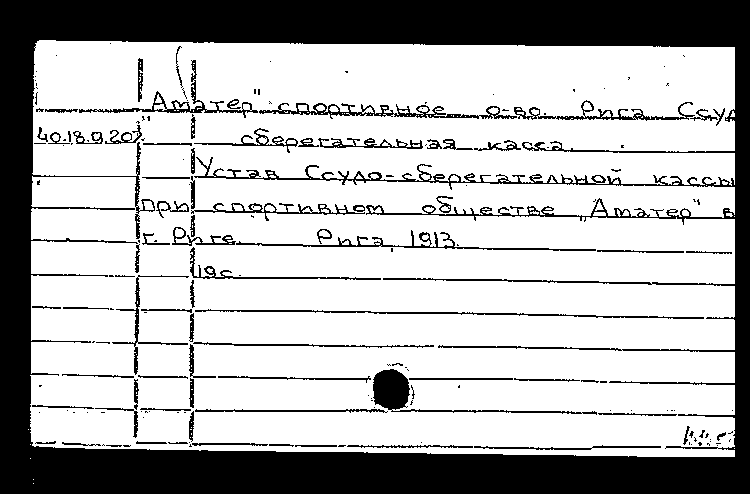 "Аматер" спортивное о-во. Рига Ссуд
40.18.9.207 сберегательная касса.
Устав Ссудо-сберегательной кассы
при спортивном обществе „Аматер" в
г. Риге. Рига, 1913.
19с.